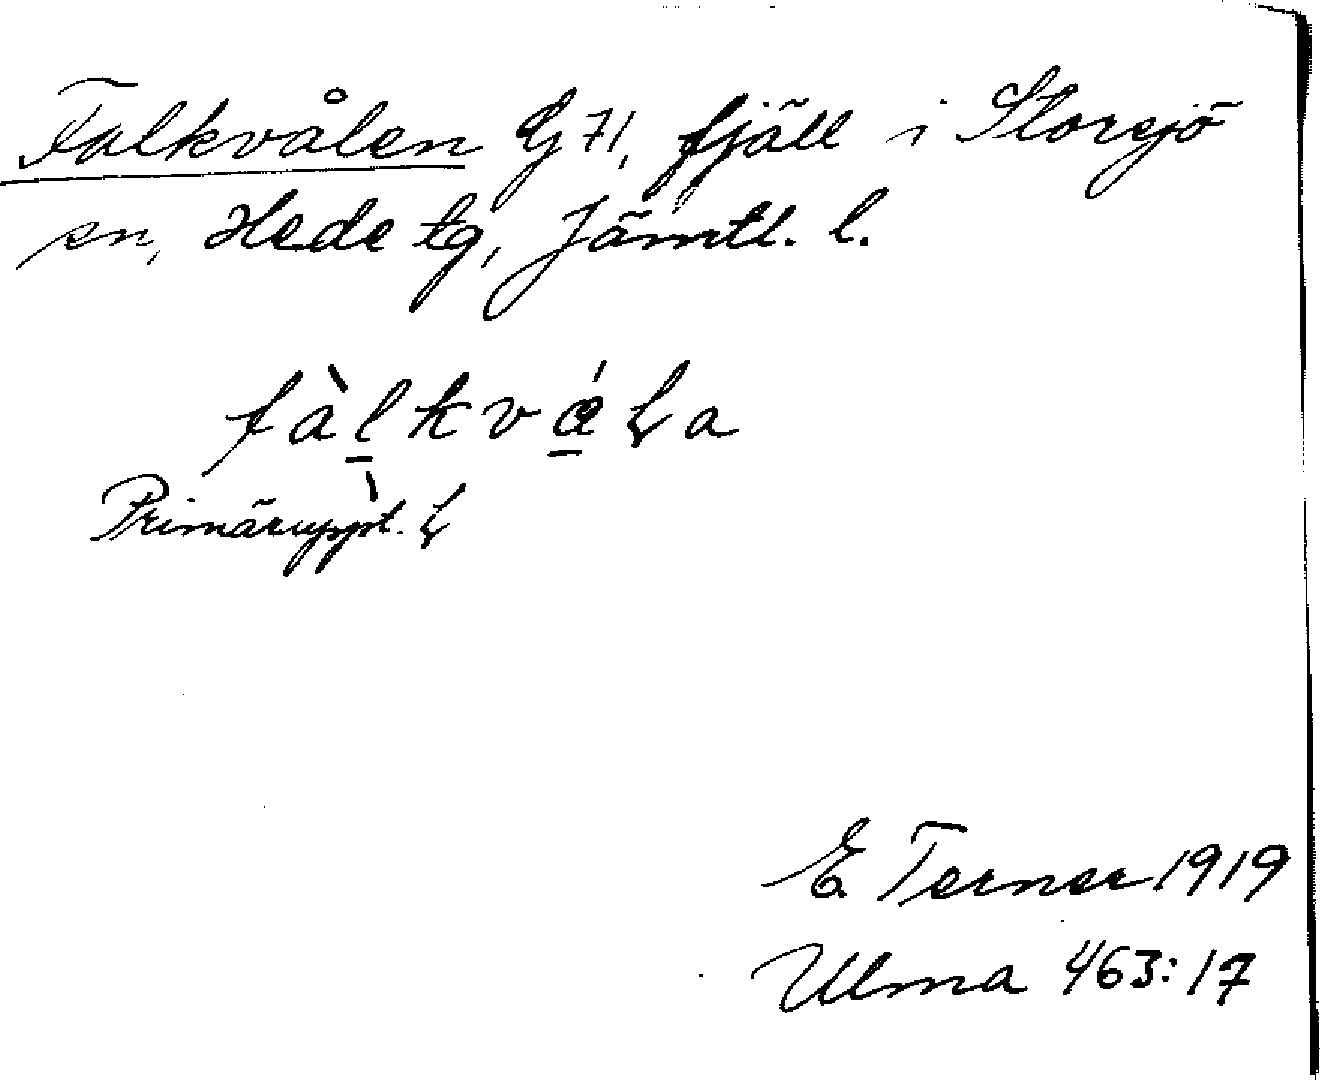 Falkvålen G 71, fjäll i Storsjö
sn, Hede tg, Jämtl. l.
fàlkvåLa
Primäruppt. L
E Terner 1919
Ulma 463:17